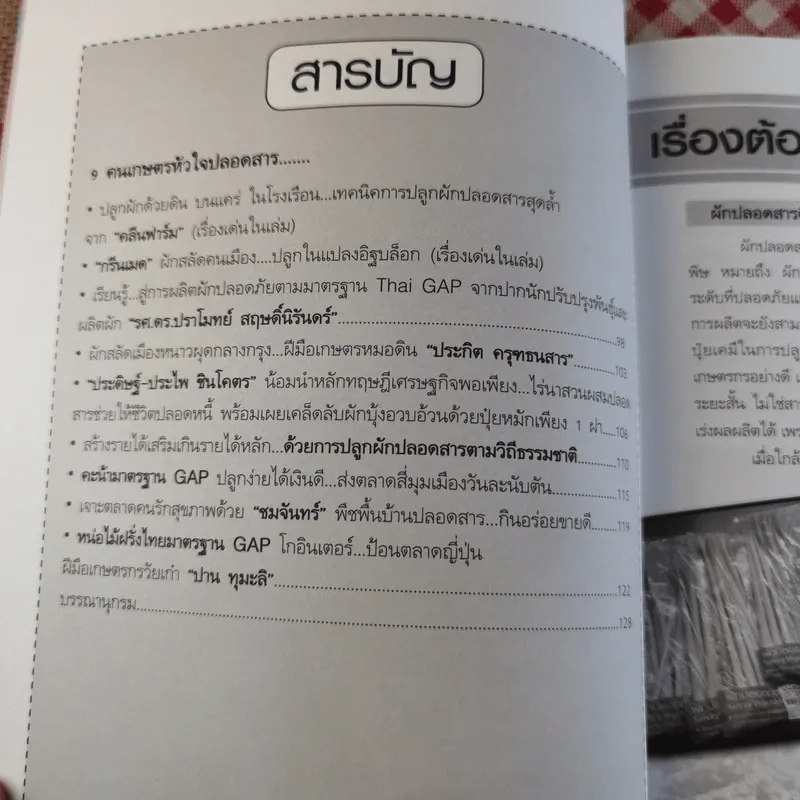 สารบัญ
9 คนเกษตรหัวใจปลอดสาร.......
• ปลูกผักด้วยดิน บนแคร่ ในโรงเรือน...เทคนิคการปลูกผักปลอดสารสุดล้ำ
จาก "คลีนฟาร์ม" (เรื่องเด่นในเล่ม)
• "กรีนเมด" ผักสลัดคนเมือง....ปลูกในแปลงอิฐบล็อก (เรื่องเด่นในเล่ม)
• เรียนรู้...สู่การผลิตผักปลอดภัยตามมาตรฐาน Thai GAP จากปากนักปรับปรุงพันธุ์และ
ผลิตผัก "รศ.ดร.ปราโมทย์ สฤษดิ์นิรันดร์"..........98
• ผักสลัดเมืองหนาวผุดกลางกรุง...ฝีมือเกษตรหมอดิน "ประกิต ครุฑธนสาร"..........103
• "ประดิษฐ์-ประไพ ชินโคตร" น้อมนำหลักทฤษฎีเศรษฐกิจพอเพียง...ไร่นาสวนผสมปลอด
สารช่วยให้ชีวิตปลอดหนี้ พร้อมเผยเคล็ดลับผักบุ้งอวบอ้วนด้วยปุ๋ยหมักเพียง 1 ฝา...106
• สร้างรายได้เสริมเกินรายได้หลัก...ด้วยการปลูกผักปลอดสารตามวิถีธรรมชาติ..........110
• คะน้ามาตรฐาน GAP ปลูกง่ายได้เงินดี...ส่งตลาดสี่มุมเมืองวันละนับตัน..........115
• เจาะตลาดคนรักสุขภาพด้วย "ชมจันทร์" พืชพื้นบ้านปลอดสาร...กินอร่อยขายดี.....119
• หน่อไม้ฝรั่งไทยมาตรฐาน GAP โกอินเตอร์...ป้อนตลาดญี่ปุ่น
ฝีมือเกษตรกรวัยเก๋า "ปาน ทุมะลิ"..........122
บรรณานุกรม..........128
เรื่องต้อ
ผักปลอดสารพิ
ผักปลอดส
พิษ หมายถึง ผัก
ระดับที่ปลอดภัยแ
การผลิตจะยังสาม
ปุ๋ยเคมีในการปลู
เกษตรกรอย่างดี เ
ระยะสั้น ไม่ใช่สา
เร่งผลผลิตได้ เพร
เมื่อใกล้